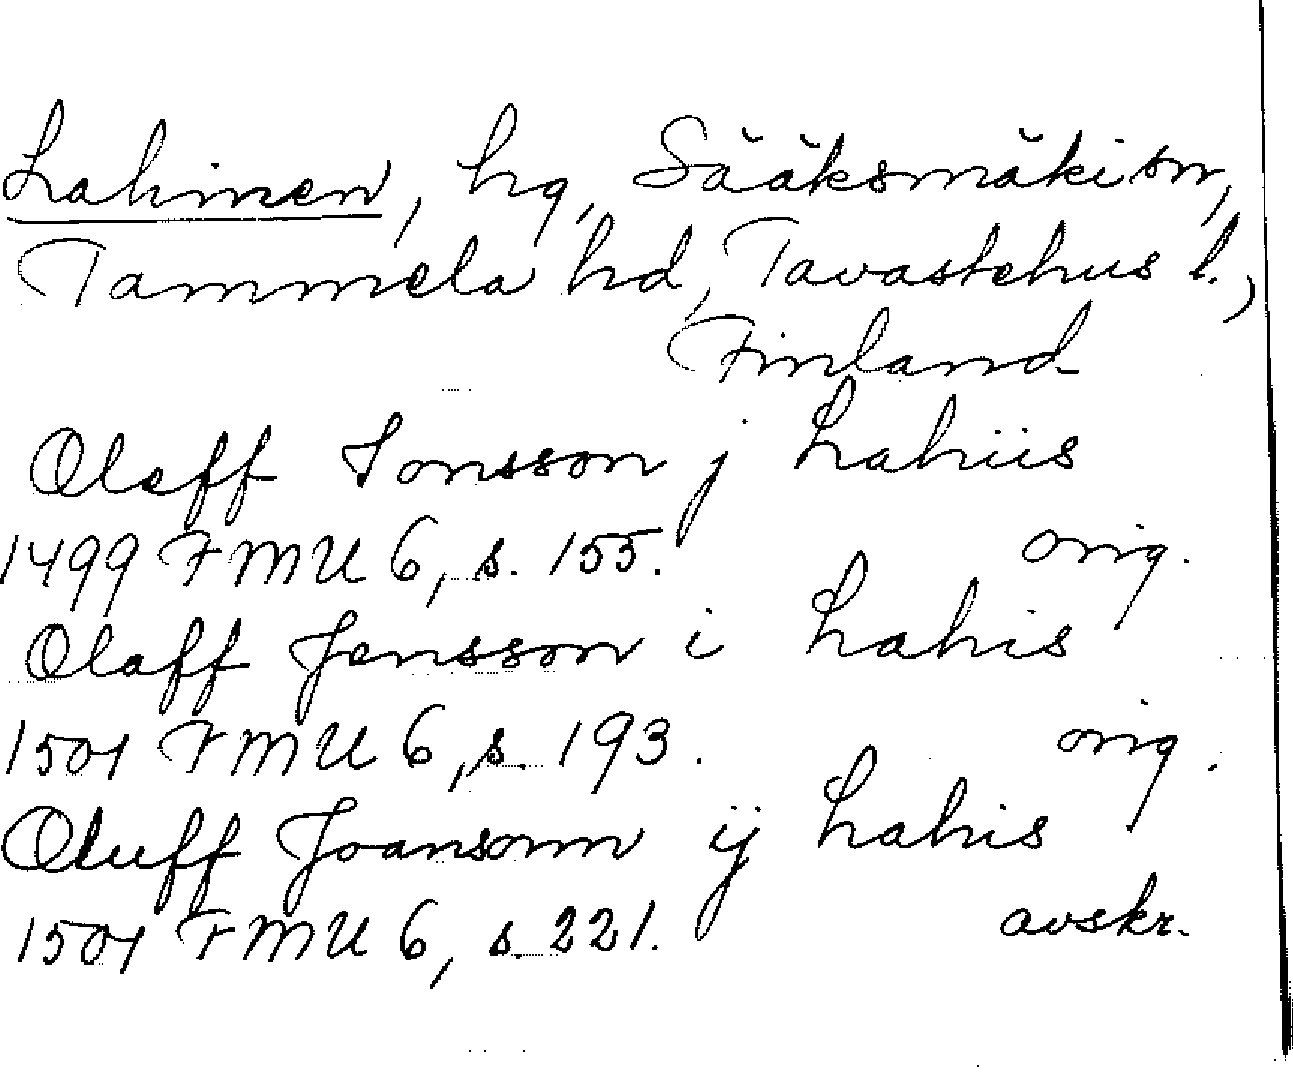 Lahinen, hg, Sääksmäki sn,
Tammela hd, Tavastehus l.,
Finland
Oleff Jonsson j Lahiis
1499 FMU 6, s. 155. orig.
Olaff Jensson i Lahis
1501 FMU 6, s. 193. orig.
Oluff Joansonn ij Lahis
1501 FMU 6, s. 221. avskr.